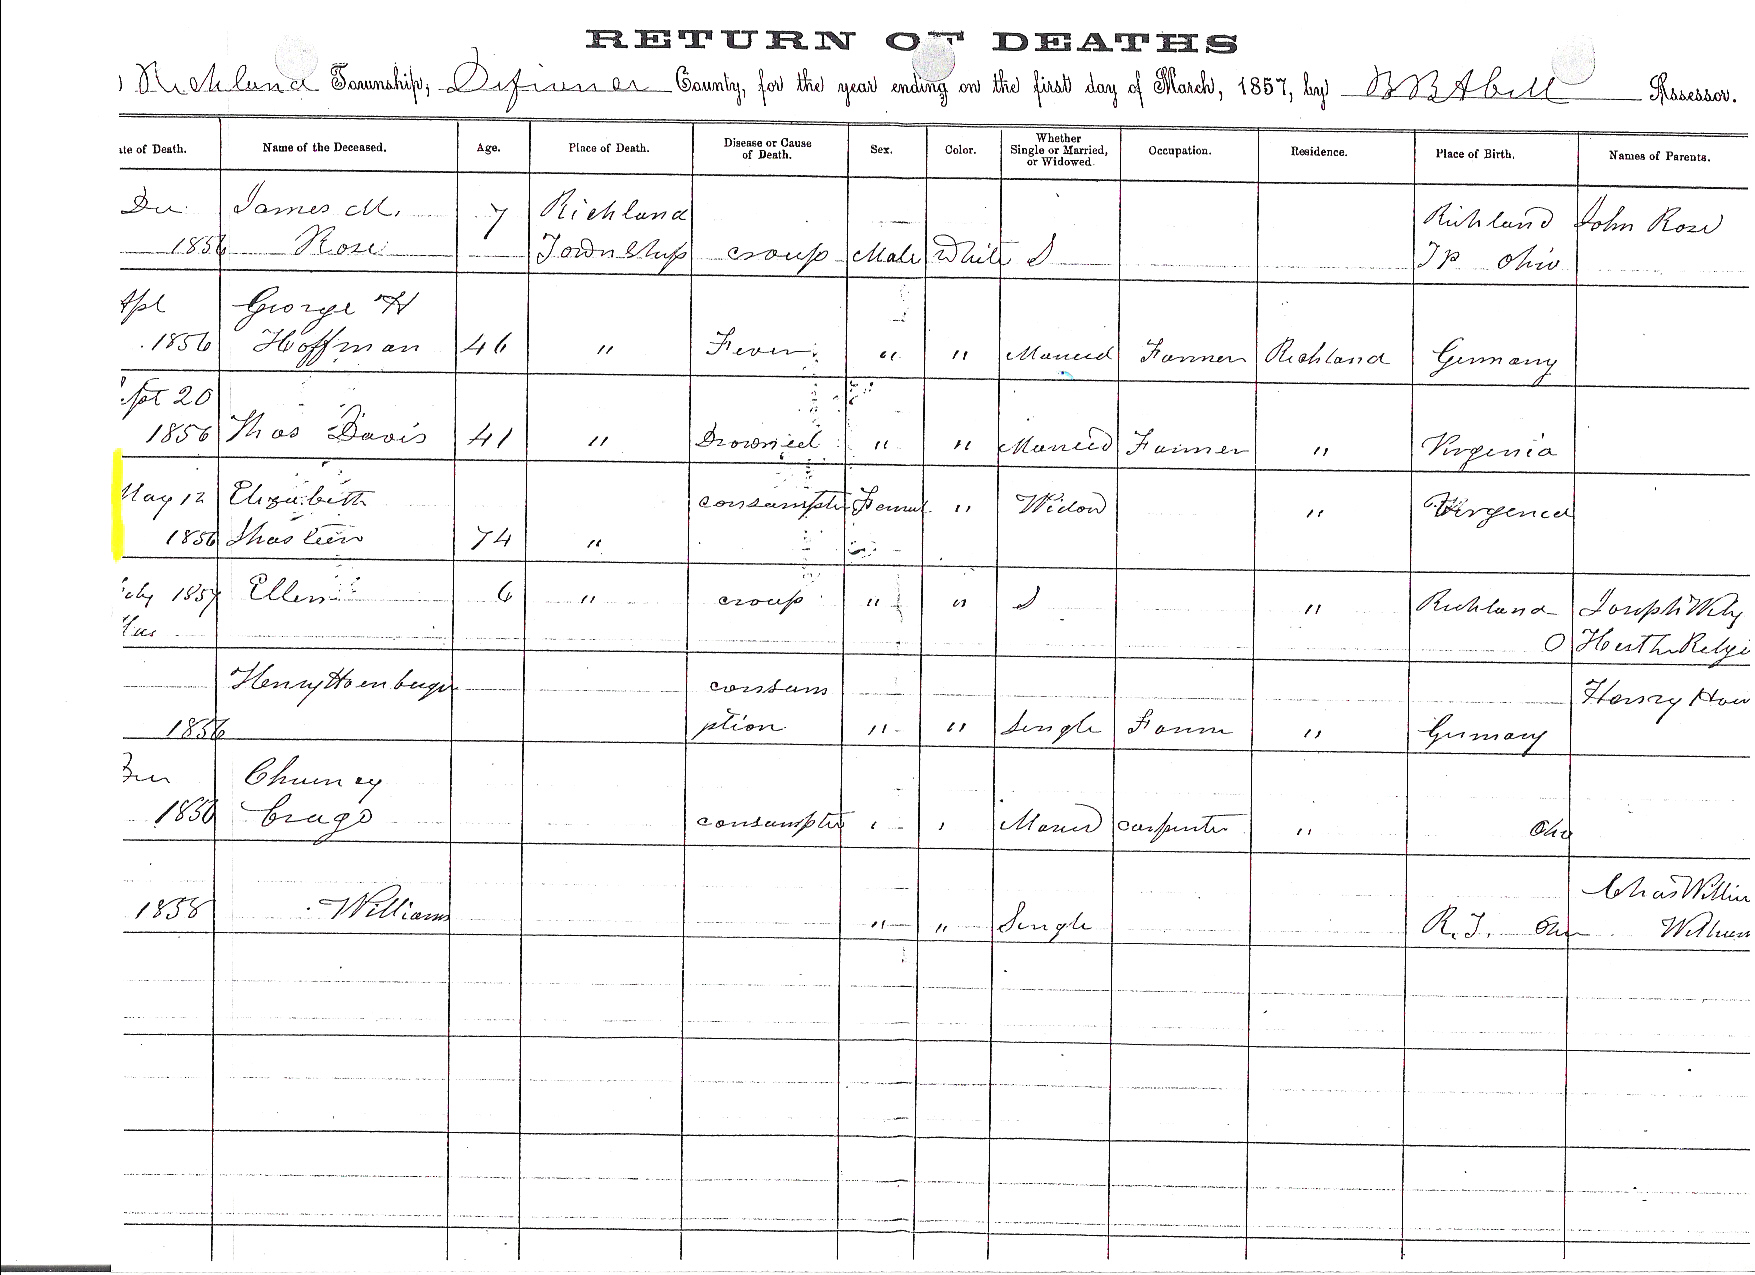 RETURN OF DEATHS
Richland Township, Defiance County, for the year ending on the first day of March, 1857, by B B Abell Assessor.
ate of Death. Name of the Deceased. Age. Place of Death. Disease or Cause of Death. Sex. Color. Whether Single or Married, or Widowed. Occupation. Residence. Place of Birth. Names of Parents.
Dec James M. 7 Richland Richland John Rose
1856 Rose Township croup Male White S Tp Ohio
Apl George H
1856 Hoffman 46 " Fever " " Married Farmer Richland Germany
Sept 20
1856 Thos Davis 41 " Drowned " " Married Farmer " Virginia
May 12 Elizabeth consumptn Female " Widow " Virginia
1856 74 "
1857 Ellen 6 " croup " " S " Richland Joseph
O
Henry consum Henry
1856 ption " " Single Farmer " Germany
Chauncy
1856 Crago consumptn Married carpenter " Ohio
Chas
1858 Williams " " Single R. T. Ohio